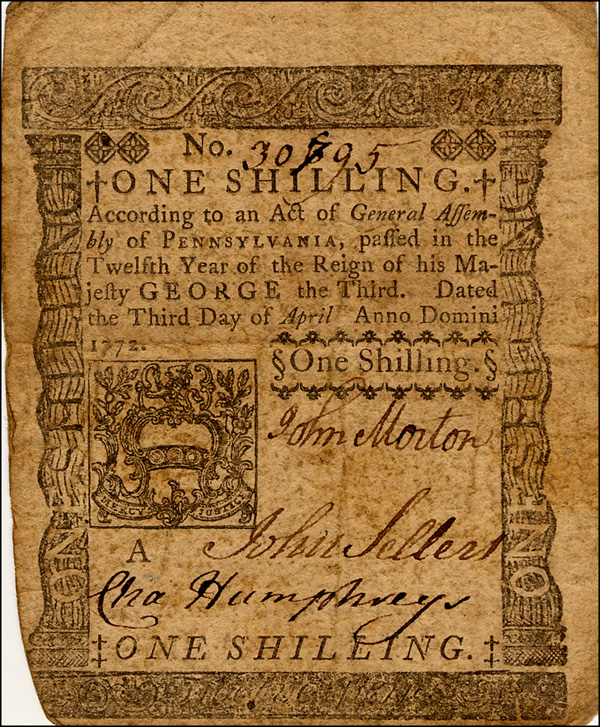 No. 30795
‡ONE SHILLING.‡
According to an Act of General Aſſem-
bly of PENNSYLVANIA, paſſed in the
Twelfth Year of the Reign of his Ma-
jeſty GEORGE the Third. Dated
the Third Day of April Anno Domini
1772.
§One Shilling.§
John Morton
MERCY JUSTICE
A
John Sellers
Cha Humphreys
‡ONE SHILLING.‡